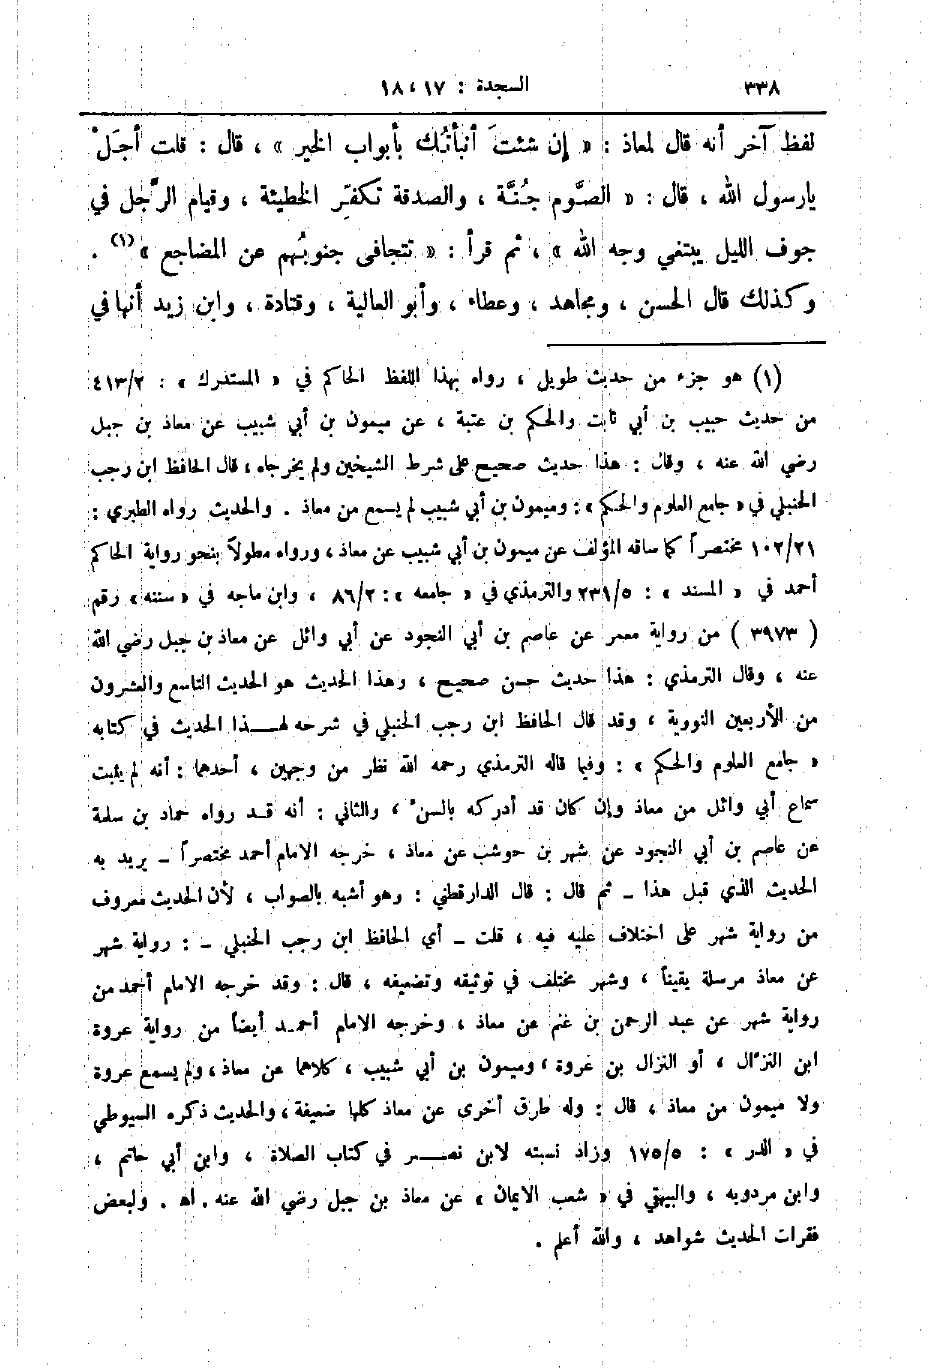 ٣٣٨ السجدة : ١٧ ، ١٨
لفظ آخر أنه قال لمعاذ : « إن شئتَ أنبأتُك بأبواب الخير » ، قال : قلت أجَلْ
يارسول الله ، قال : « الصَّوم جُنَّة ، والصدقة تكفّر الخطيئة ، وقيام الرَّجل في
جوف الليل يبتغي وجه الله » ، ثم قرأ : « تتجافى جنوبُهم عن المضاجع » (١) .
وكذلك قال الحسن ، ومجاهد ، وعطاء ، وأبو العالية ، وقتادة ، وابن زيد أنها في
(١) هو جزء من حديث طويل ، رواه بهذا اللفظ الحاكم في « المستدرك » : ٤١٣/٢
من حديث حبيب بن أبي ثابت والحكم بن عتبة ، عن ميمون بن أبي شبيب عن معاذ بن جبل
رضي الله عنه ، وقال : هذا حديث صحيح على شرط الشيخين ولم يخرجاه ، قال الحافظ ابن رجب
الحنبلي في « جامع العلوم والحكم » : وميمون بن أبي شبيب لم يسمع من معاذ . والحديث رواه الطبري :
١٠٢/٢١ مختصراً كما ساقه المؤلف عن ميمون بن أبي شبيب عن معاذ ، ورواه مطولاً بنحو رواية الحاكم
أحمد في « المسند » : ٢٣١/٥ والترمذي في « جامعه » : ٨٦/٢ ، وابن ماجه في « سننه » رقم
( ٣٩٧٣ ) من رواية معمر عن عاصم بن أبي النجود عن أبي وائل عن معاذ بن جبل رضي الله
عنه ، وقال الترمذي : هذا حديث حسن صحيح ، وهذا الحديث هو الحديث التاسع والعشرون
من الأربعين النووية ، وقد قال الحافظ ابن رجب الحنبلي في شرحه لهـــذا الحديث في كتابه
« جامع العلوم والحكم » : وفيما قاله الترمذي رحمه الله نظر من وجهين ، أحدهما : أنه لم يثبت
سماع أبي وائل من معاذ وإن كان قد أدركه بالسن ، والثاني : أنه قــد رواه حماد بن سلمة
عن عاصم بن أبي النجود عن شهر بن حوشب عن معاذ ، خرجه الامام أحمد مختصراً ـ يريد به
الحديث الذي قبل هذا ـ ثم قال : قال الدارقطني : وهو أشبه بالصواب ، لأن الحديث معروف
من رواية شهر على اختلاف عليه فيه ، قلت ـ أي الحافظ ابن رجب الحنبلي ـ : رواية شهر
عن معاذ مرسلة يقيناً ، وشهر مختلف في توثيقه وتضعيفه ، قال : وقد خرجه الامام أحمد من
رواية شهر عن عبد الرحمن بن غنم عن معاذ ، وخرجه الامام أحمـد أيضاً من رواية عروة
ابن النزّال ، أو النزال بن عروة ، وميمون بن أبي شبيب ، كلاهما عن معاذ ، ولم يسمع عروة
ولا ميمون من معاذ ، قال : وله طرق أخرى عن معاذ كلها ضعيفة ، والحديث ذكره السيوطي
في « الدر » : ١٧٥/٥ وزاد نسبته لابن نصـــر في كتاب الصلاة ، وابن أبي حاتم ،
وابن مردويه ، والبيهقي في « شعب الايمان » عن معاذ بن جبل رضي الله عنه . اه . ولبعض
فقرات الحديث شواهد ، والله أعلم .